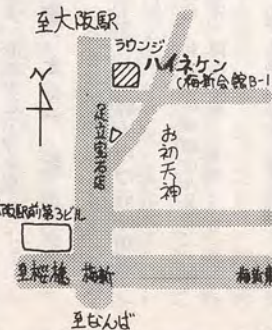 至大阪駅
ラウンジ
ハイネケン
(梅新会館B-1
N
足立宝石店
お初天神
阪駅前第3ビル
至桜橋
梅新
梅新東
至なんば